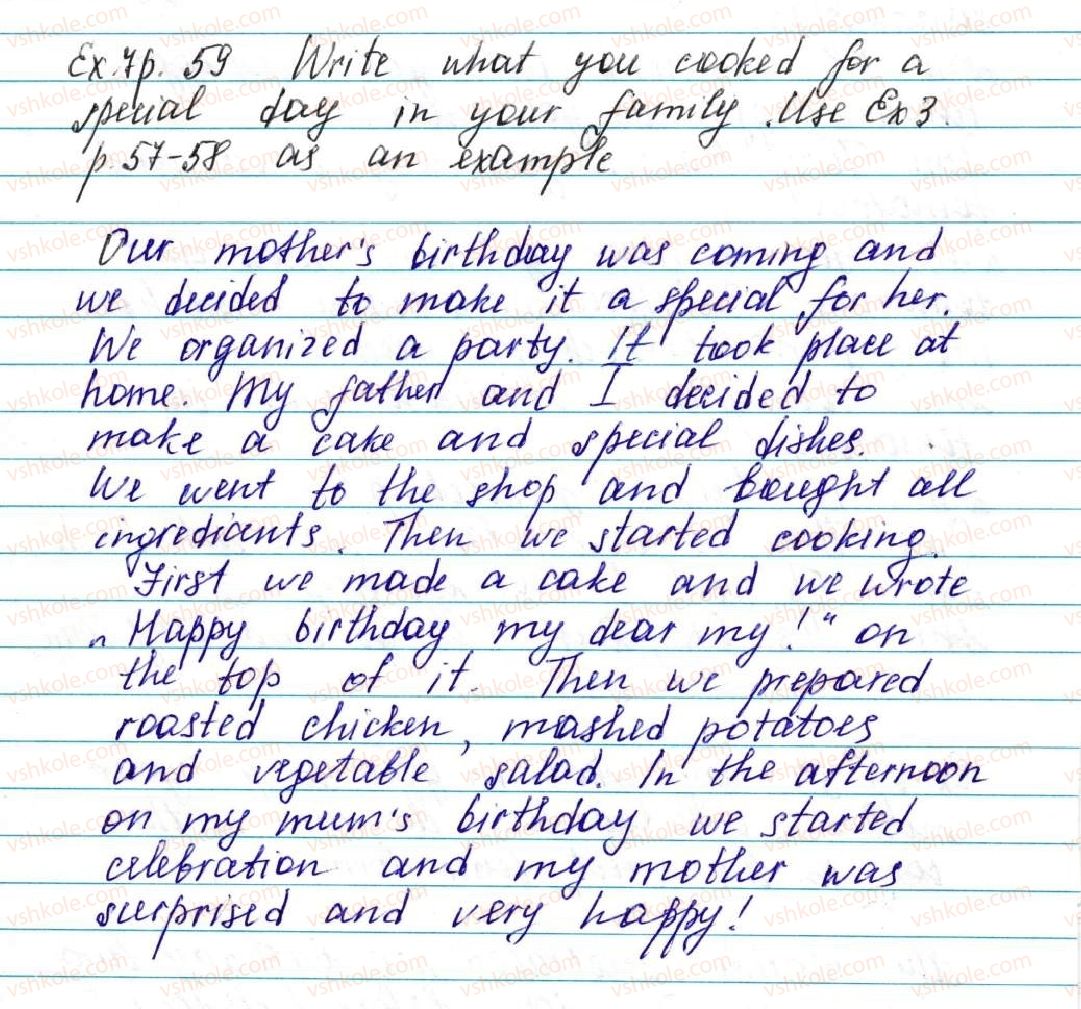 Ex.7p. 59 Write what you cooked for a
special day in your family. Use Ex3.
p.57-58 as an example
Our mother's birthday was coming and
we decided to make it a special for her.
We organized a party. It took place at
home. My father and I decided to
make a cake and special dishes.
We went to the shop and bought all
ingrediants. Then we started cooking.
First we made a cake and we wrote
„Happy birthday my dear my!“ on
the top of it. Then we prepared
roasted chicken, mashed potatoes
and vegetable salad. In the afternoon
on my mum's birthday we started
celebration and my mother was
surprised and very happy!